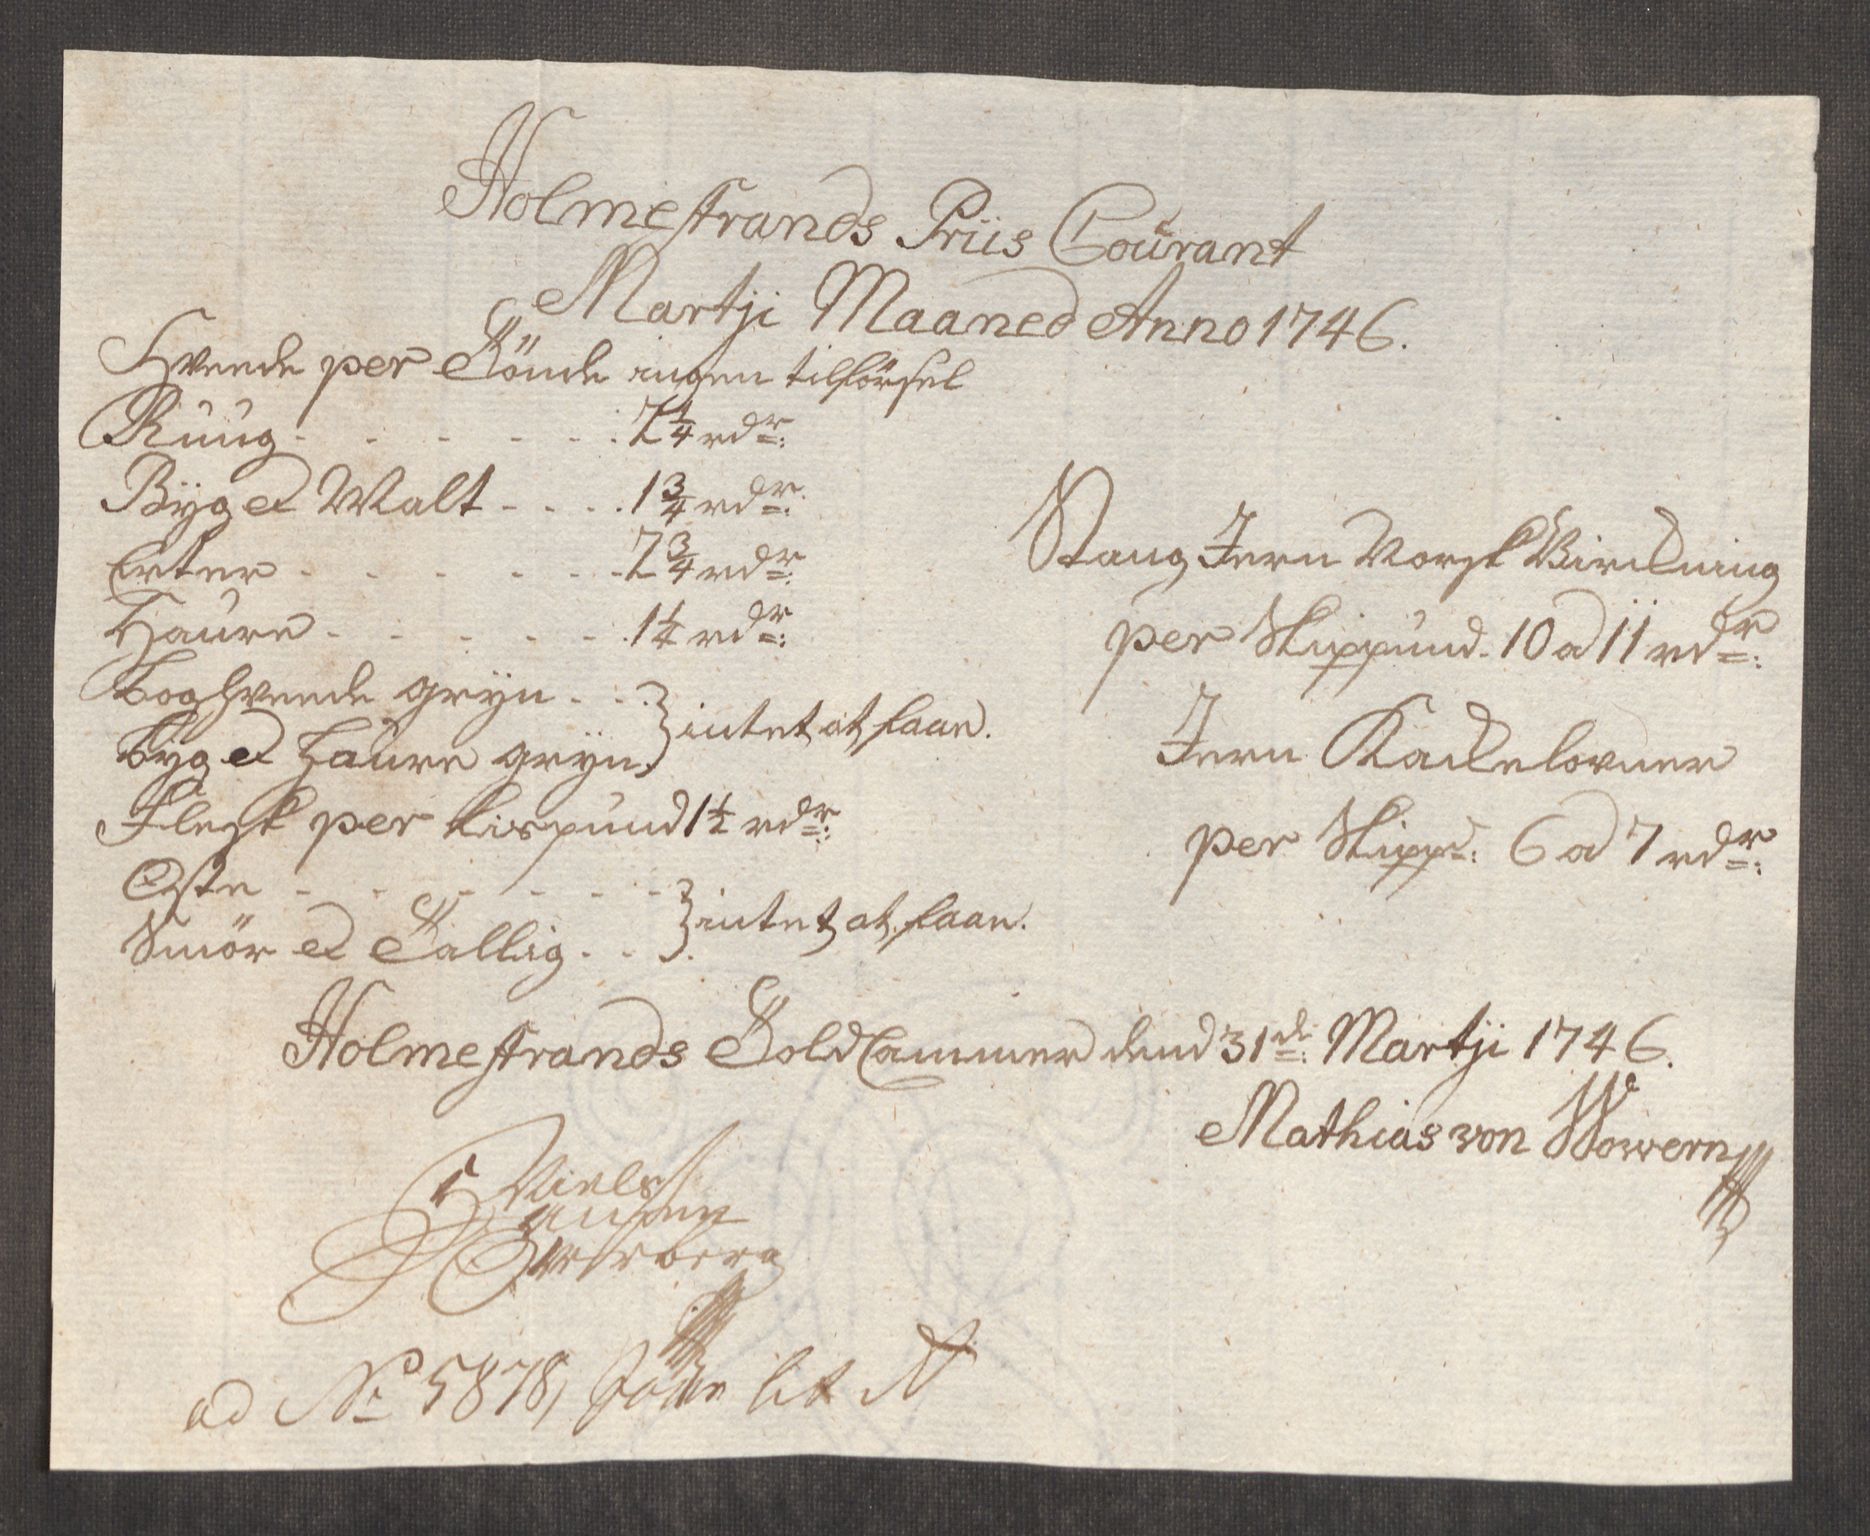 Holmestrands Priis Courant
Martji Maaned Anno 1746.
Hveede per Tönde ingen tilförsel
Ruug - - - - - - 2 1/4 rdr:
Byg et Malt - - - - 1 3/4 rdr:
Erter - - - - - - 2 3/4 rdr:
Haure - - - - - - 1 1/4 rdr:
Boghveede gryn - - -
Byg et Haure gryn } intet at faae.
Flesk per Lispund 1 1/2 rdr:
Oste - - - - - -
Smör et Tallig - - } intet at faae.
Stang Jern Norsk Virckning
per Skippund 10 a 11 rdr:
Jern Kackelovner
per Skippd: 6 a 7 rdr:
Holmestrands Told Cammer dend 31de: Martji 1746.
Mathias von Wowern
Niels
Hansen
ad No 5878, lit N